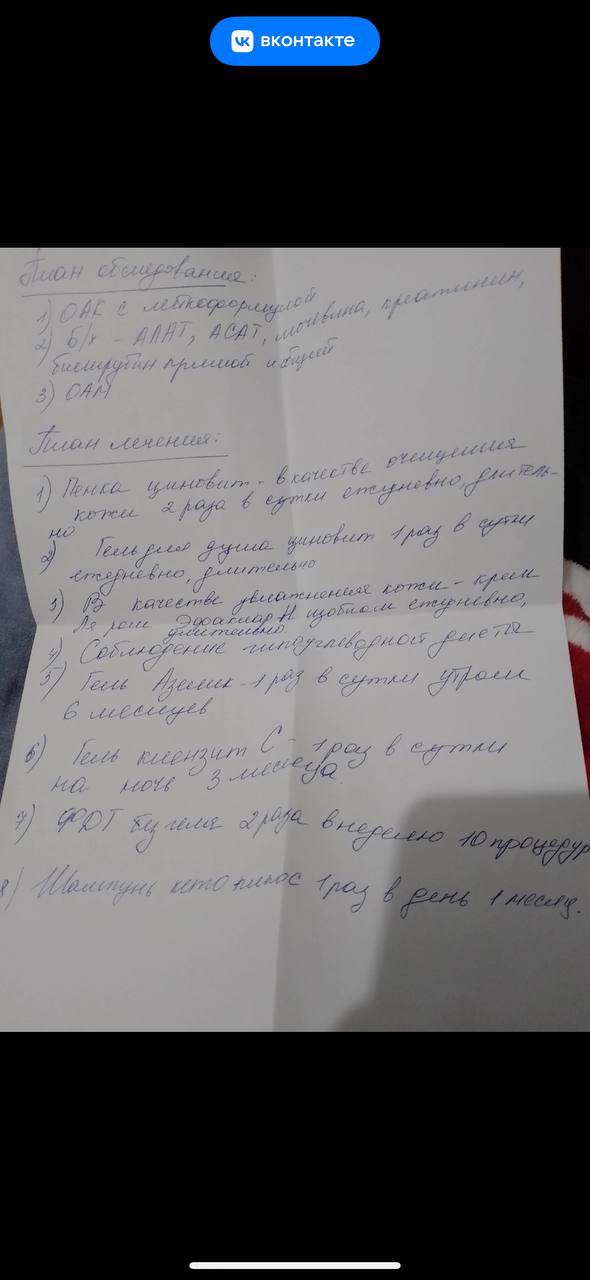 вконтакте
План обследования:
1) ОАК с лейкоформулой
2) Б/х - АЛАТ, АСАТ, мочевина, креатинин,
билирубин прямой и общий
3) ОАМ
План лечения:
1) Пенка циновит - в качестве очищения
кожи 2 раза в сутки ежедневно, длитель-
но
2) Гель для душа циновит 1 раз в сутки
ежедневно, длительно
3) В качестве увлажнения кожи - крем
Ля рош Эфаклар H ежедневно,
длительно
4) Соблюдение гипоуглеводной диеты
5) Гель Азелик - 1 раз в сутки утром
6 месяцев
6) Гель клензит С - 1 раз в сутки
на ночь 3 месяца
7) ФДТ без геля 2 раза в неделю 10 процедур
8) Шампунь кето плюс 1 раз в день 1 месяц.